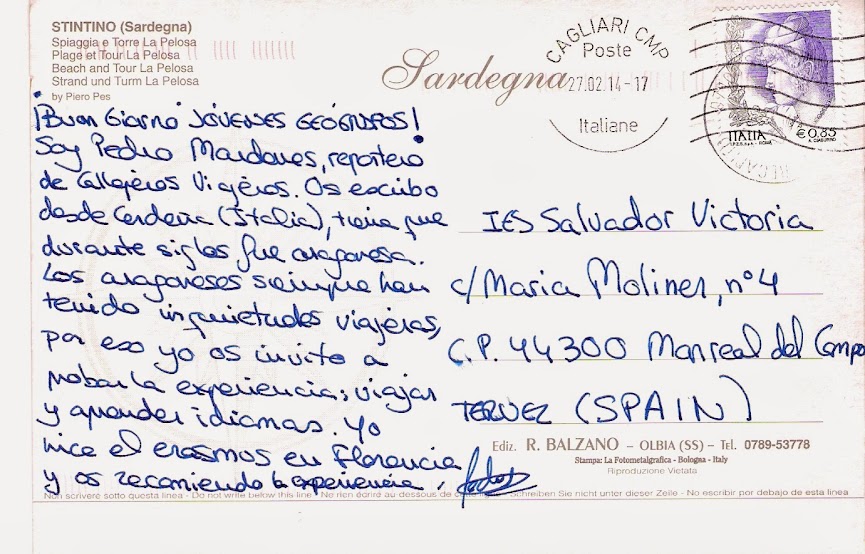 STINTINO (Sardegna)
Spiaggia e Torre La Pelosa
Plage et Tour La Pelosa
Beach and Tour La Pelosa
Strand und Turm La Pelosa
by Piero Pes
Sardegna
CAGLIARI CMP
Poste
27.02.14-17
Italiane
ITALIA
€0,85
¡Buon Giorno JÓVENES GEÓGRAFOS!
Soy Pedro Mardones, reportero
de Callejeros Viajeros. Os escribo
desde Cerdeña (Italia), tierra que
durante siglos fue aragonesa.
Los aragoneses siempre han
tenido inquietudes viajeras,
por eso yo os invito a
probar la experiencia; viajar
y aprender idiomas. Yo
hice el erasmus en Florencia
y os recomiendo la experiencia,
IES Salvador Victoria
c/ Maria Moliner, nº 4
C.P. 44300 Monreal del Campo
TERUEL (SPAIN)
Ediz. R. BALZANO – OLBIA (SS) – Tel. 0789-53778
Stampa: La Fotometalgrafica - Bologna - Italy
Riproduzione Vietata
Non scrivere sotto questa linea - Do not write below this line - Ne rien écrire au dessous de cette ligne - Schreiben Sie nicht unter dieser Zeile - No escribir por debajo de esta linea